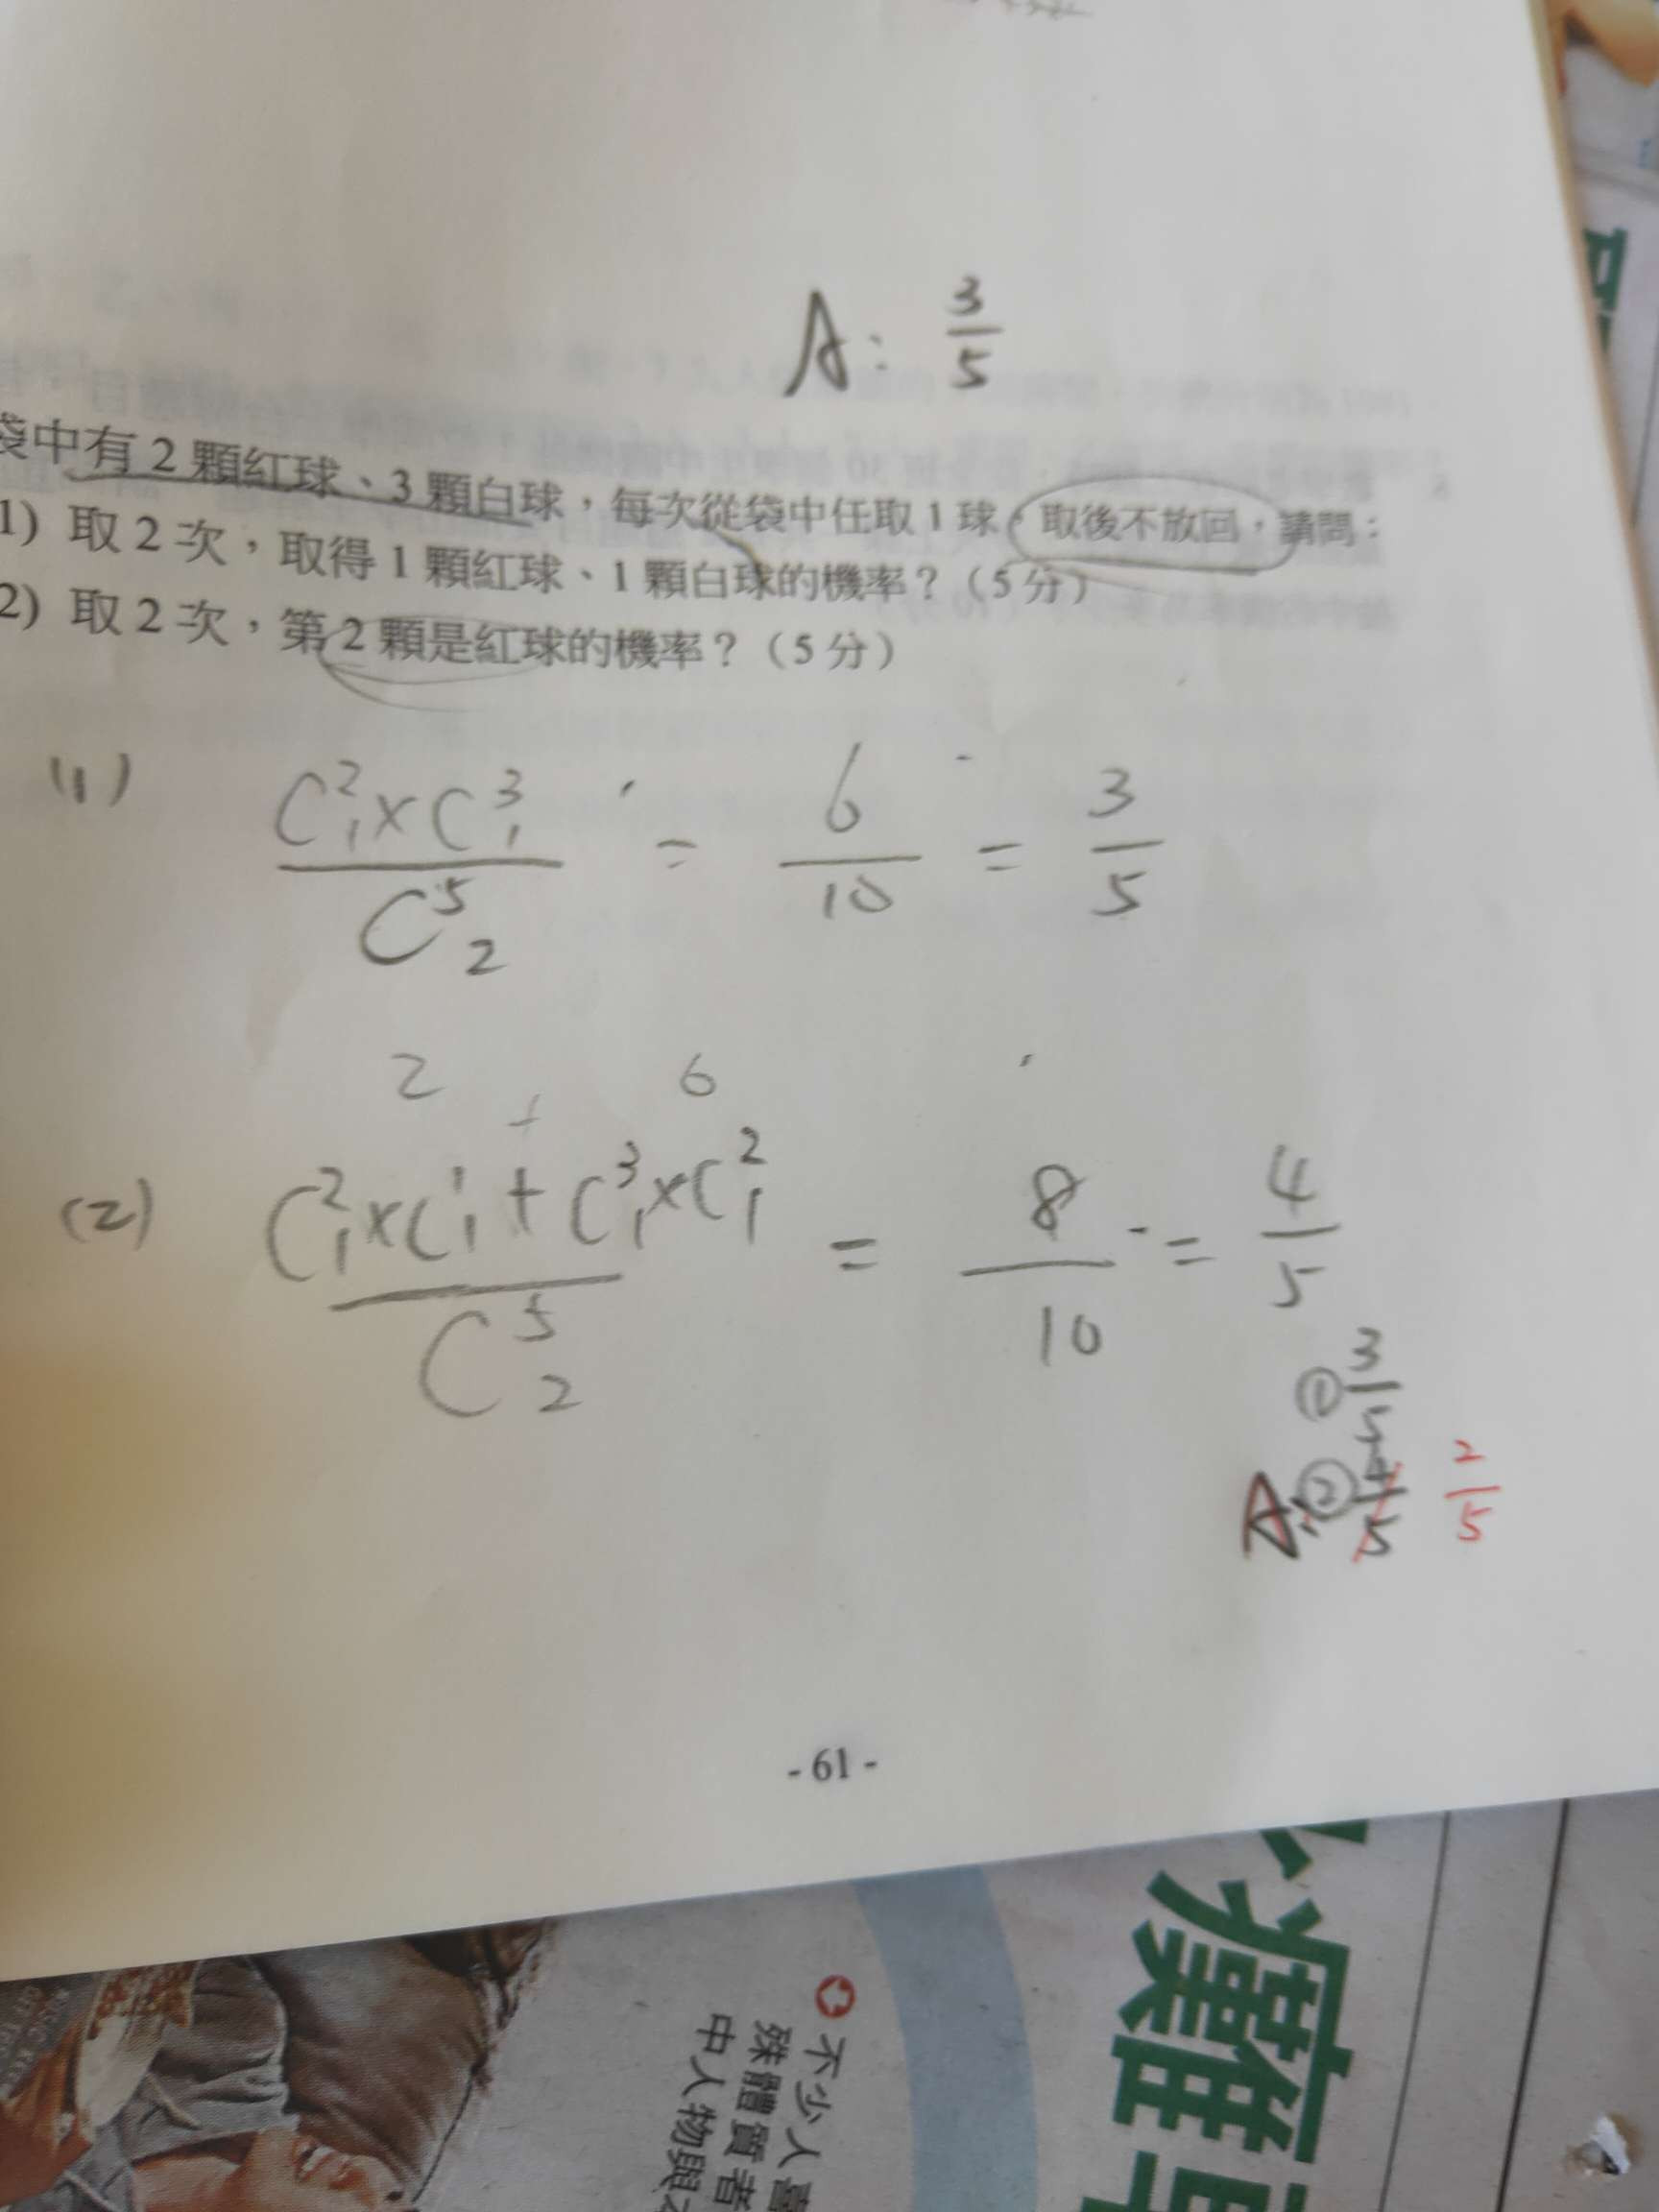 A: 3/5
袋中有 2 顆紅球、3 顆白球，每次從袋中任取 1 球，取後不放回，請問：
1) 取 2 次，取得 1 顆紅球、1 顆白球的機率？（5 分）
2) 取 2 次，第 2 顆是紅球的機率？（5 分）
(1) C²₁×C³₁ / C⁵₂ = 6/10 = 3/5
2 + 6
(2) C²₁×C¹₁+C³₁×C²₁ / C⁵₂ = 8/10 = 4/5
① 3/5
A: ② 4/5 2/5
- 61 -
不少人喜
殊體質者
中人物與
癱